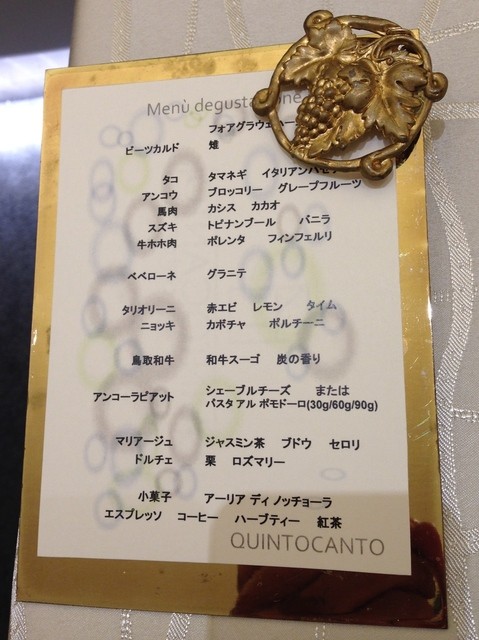 Menù degustazione
フォアグラ
ピーツカルド 雉
タコ タマネギ イタリアンパセリ
アンコウ ブロッコリー グレープフルーツ
馬肉 カシス カカオ
スズキ トピナンブール バニラ
牛ホホ肉 ポレンタ フィンフェルリ
ペペローネ グラニテ
タリオリーニ 赤エビ レモン タイム
ニョッキ カボチャ ポルチーニ
鳥取和牛 和牛スーゴ 炭の香り
アンコーラピアット シェーブルチーズ または
パスタ アル ポモドーロ(30g/60g/90g)
マリアージュ ジャスミン茶 ブドウ セロリ
ドルチェ 栗 ロズマリー
小菓子 アーリア ディ ノッチョーラ
エスプレッソ コーヒー ハーブティー 紅茶
QUINTOCANTO